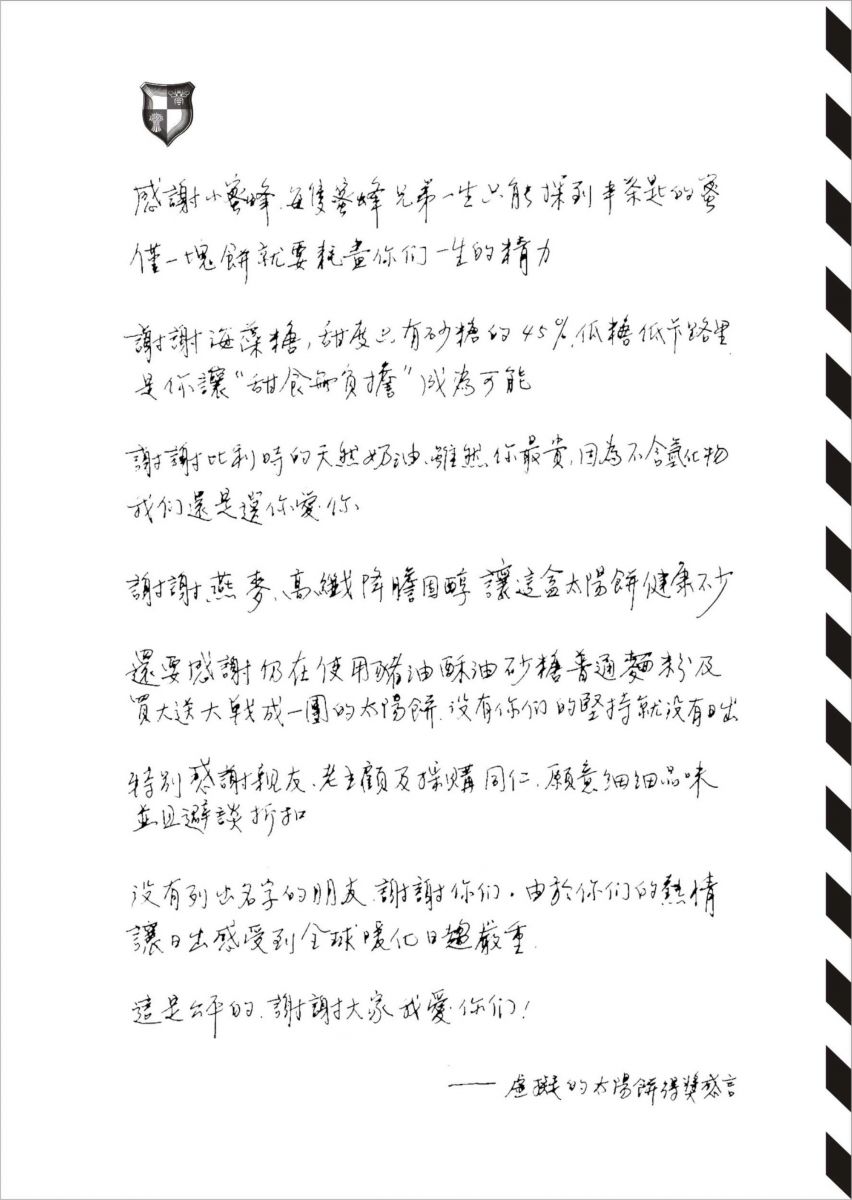 感謝小蜜蜂、每隻蜜蜂兄弟一生只能採到半茶匙的蜜
僅一塊餅就要耗盡你们一生的精力
謝謝海藻糖，甜度只有砂糖的45%、低糖低卡路里
是你讓“甜食無負擔”成為可能
謝謝比利時的天然奶油、雖然你最貴、因為不含氫化物
我们還是選你愛你
謝謝燕麥、高纖降膽固醇 讓這盒太陽餅健康不少
還要感謝仍在使用豬油酥油砂糖普通麵粉及
買大送大戰成一團的太陽餅、没有你们的堅持就没有日出
特別感謝親友、老主顧及採購同仁、願意細細品味
並且避談折扣
没有列出名字的朋友 謝謝你们．由於你们的熱情
讓日出感受到全球暖化日趨嚴重．
這是公平的、謝謝大家 我愛你们！
—— 虛擬的太陽餅得獎感言